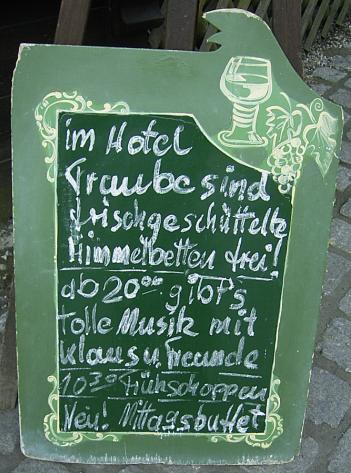 im Hotel
Traube sind
frischgeschüttelte
Himmelbetten frei!
ab 20⁰⁰ gibt's
tolle Musik mit
Klaus u. Freunde
10³⁰ Frühschoppen
Neu! Mittagsbuffet